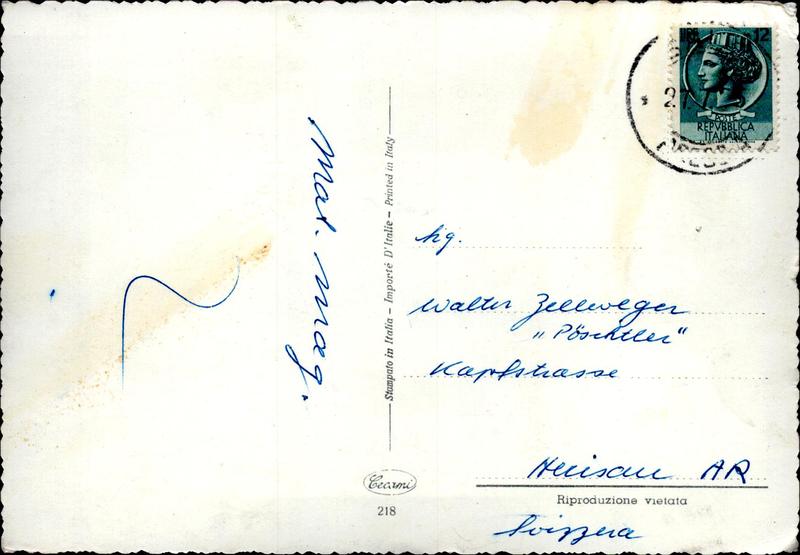 Mat. Mag.
Stampato in Italia - Importé D'Italie - Printed in Italy
Cecami
218
LIRE 12
POSTE
REPVBBLICA
ITALIANA
Sig.
Walter Zellweger
"Pöschtler"
Kapfstrasse
Herisau AR
Riproduzione vietata
Svizzera